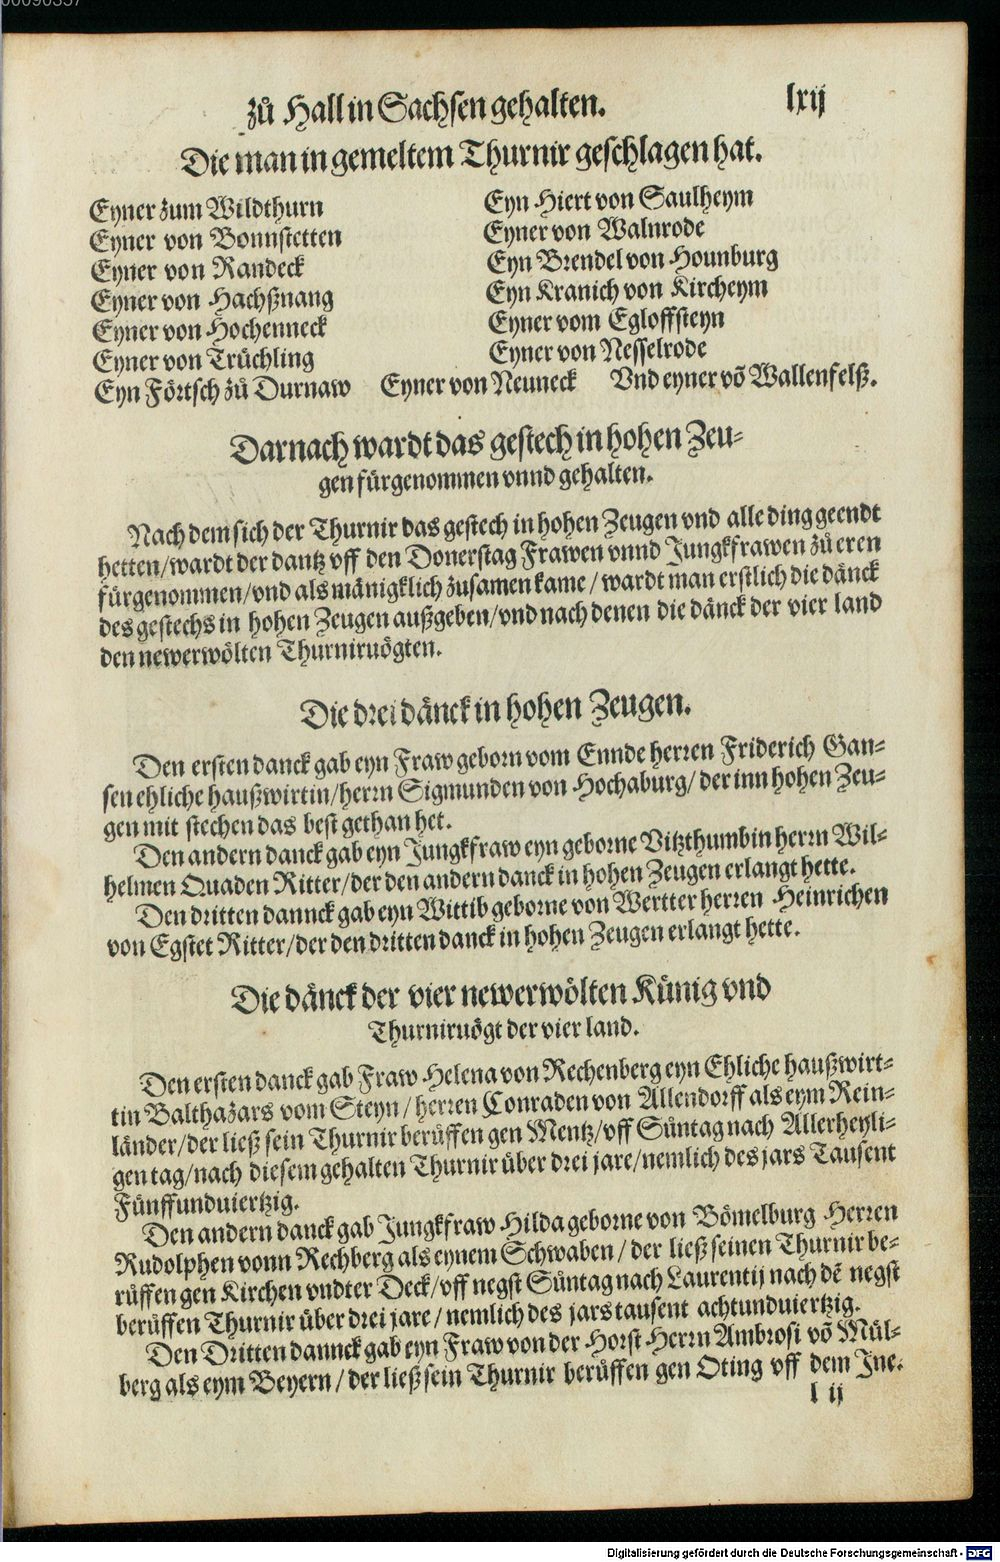 zů Hall in Sachsen gehalten. lxij
Die man in gemeltem Thurnir geschlagen hat.
Eyner zum Wildthurn
Eyner von Bonnstetten
Eyner von Randeck
Eyner von Hachßnang
Eyner von Hochenneck
Eyner von Trüchling
Eyn Hiert von Saulheym
Eyner von Walnrode
Eyn Brendel von Hounburg
Eyn Kranich von Kircheym
Eyner vom Egloffsteyn
Eyner von Nesselrode
Eyn Förtsch zů Durnaw Eyner von Neuneck Vnd eyner võ Wallenfelß.
Darnach wardt das gestech in hohen Zeu-
gen fürgenommen vnnd gehalten.
Nach dem sich der Thurnir das gestech in hohen Zeugen vnd alle ding geendt
hetten/wardt der dantz vff den Donerstag Frawen vnnd Jungkfrawen zů eren
fürgenommen/vnd als mänigklich zusamen kame/wardt man erstlich die dänck
des gestechs in hohen Zeugen außgeben/vnd nach denen die dänck der vier land
den newerwölten Thurniruögten.
Die drei dänck in hohen Zeugen.
Den ersten danck gab eyn Fraw geborn vom Ennde herren Friderich Gan-
sen ehliche haußwirtin/herrn Sigmunden von Hochaburg/der inn hohen Zeu-
gen mit stechen das best gethan het.
Den andern danck gab eyn Jungkfraw eyn geborne Vitzthumbin herrn Wil-
helmen Quaden Ritter/der den andern danck in hohen Zeugen erlangt hette.
Den dritten dannck gab eyn Wittib geborne von Wertter herren Heinrichen
von Egstet Ritter/der den dritten danck in hohen Zeugen erlangt hette.
Die dänck der vier newerwölten Künig vnd
Thurniruögt der vier land.
Den ersten danck gab Fraw Helena von Rechenberg eyn Ehliche haußwirt-
tin Balthazars vom Steyn/herren Conraden von Allendorff als eym Rein-
länder/der ließ sein Thurnir berůffen gen Mentz/vff Suntag nach Allerheyli-
gen tag/nach diesem gehalten Thurnir über drei jare/nemlich des jars Tausent
Fünffunduiertzig.
Den andern danck gab Jungkfraw Hilda geborne von Bömelburg Herren
Rudolphen vonn Rechberg als eynem Schwaben/der ließ seinen Thurnir be-
růffen gen Kirchen vndter Deck/vff negst Suntag nach Laurentij nach dẽ negst
berůffen Thurnir über drei jare/nemlich des jars tausent achtunduiertzig.
Den Dritten dannck gab eyn Fraw von der Horst Herrn Ambrosi võ Mül-
berg als eym Beyern/der ließ sein Thurnir berůffen gen Oting vff dem Jne.
l ij
Digitalisierung gefördert durch die Deutsche Forschungsgemeinschaft - DFG